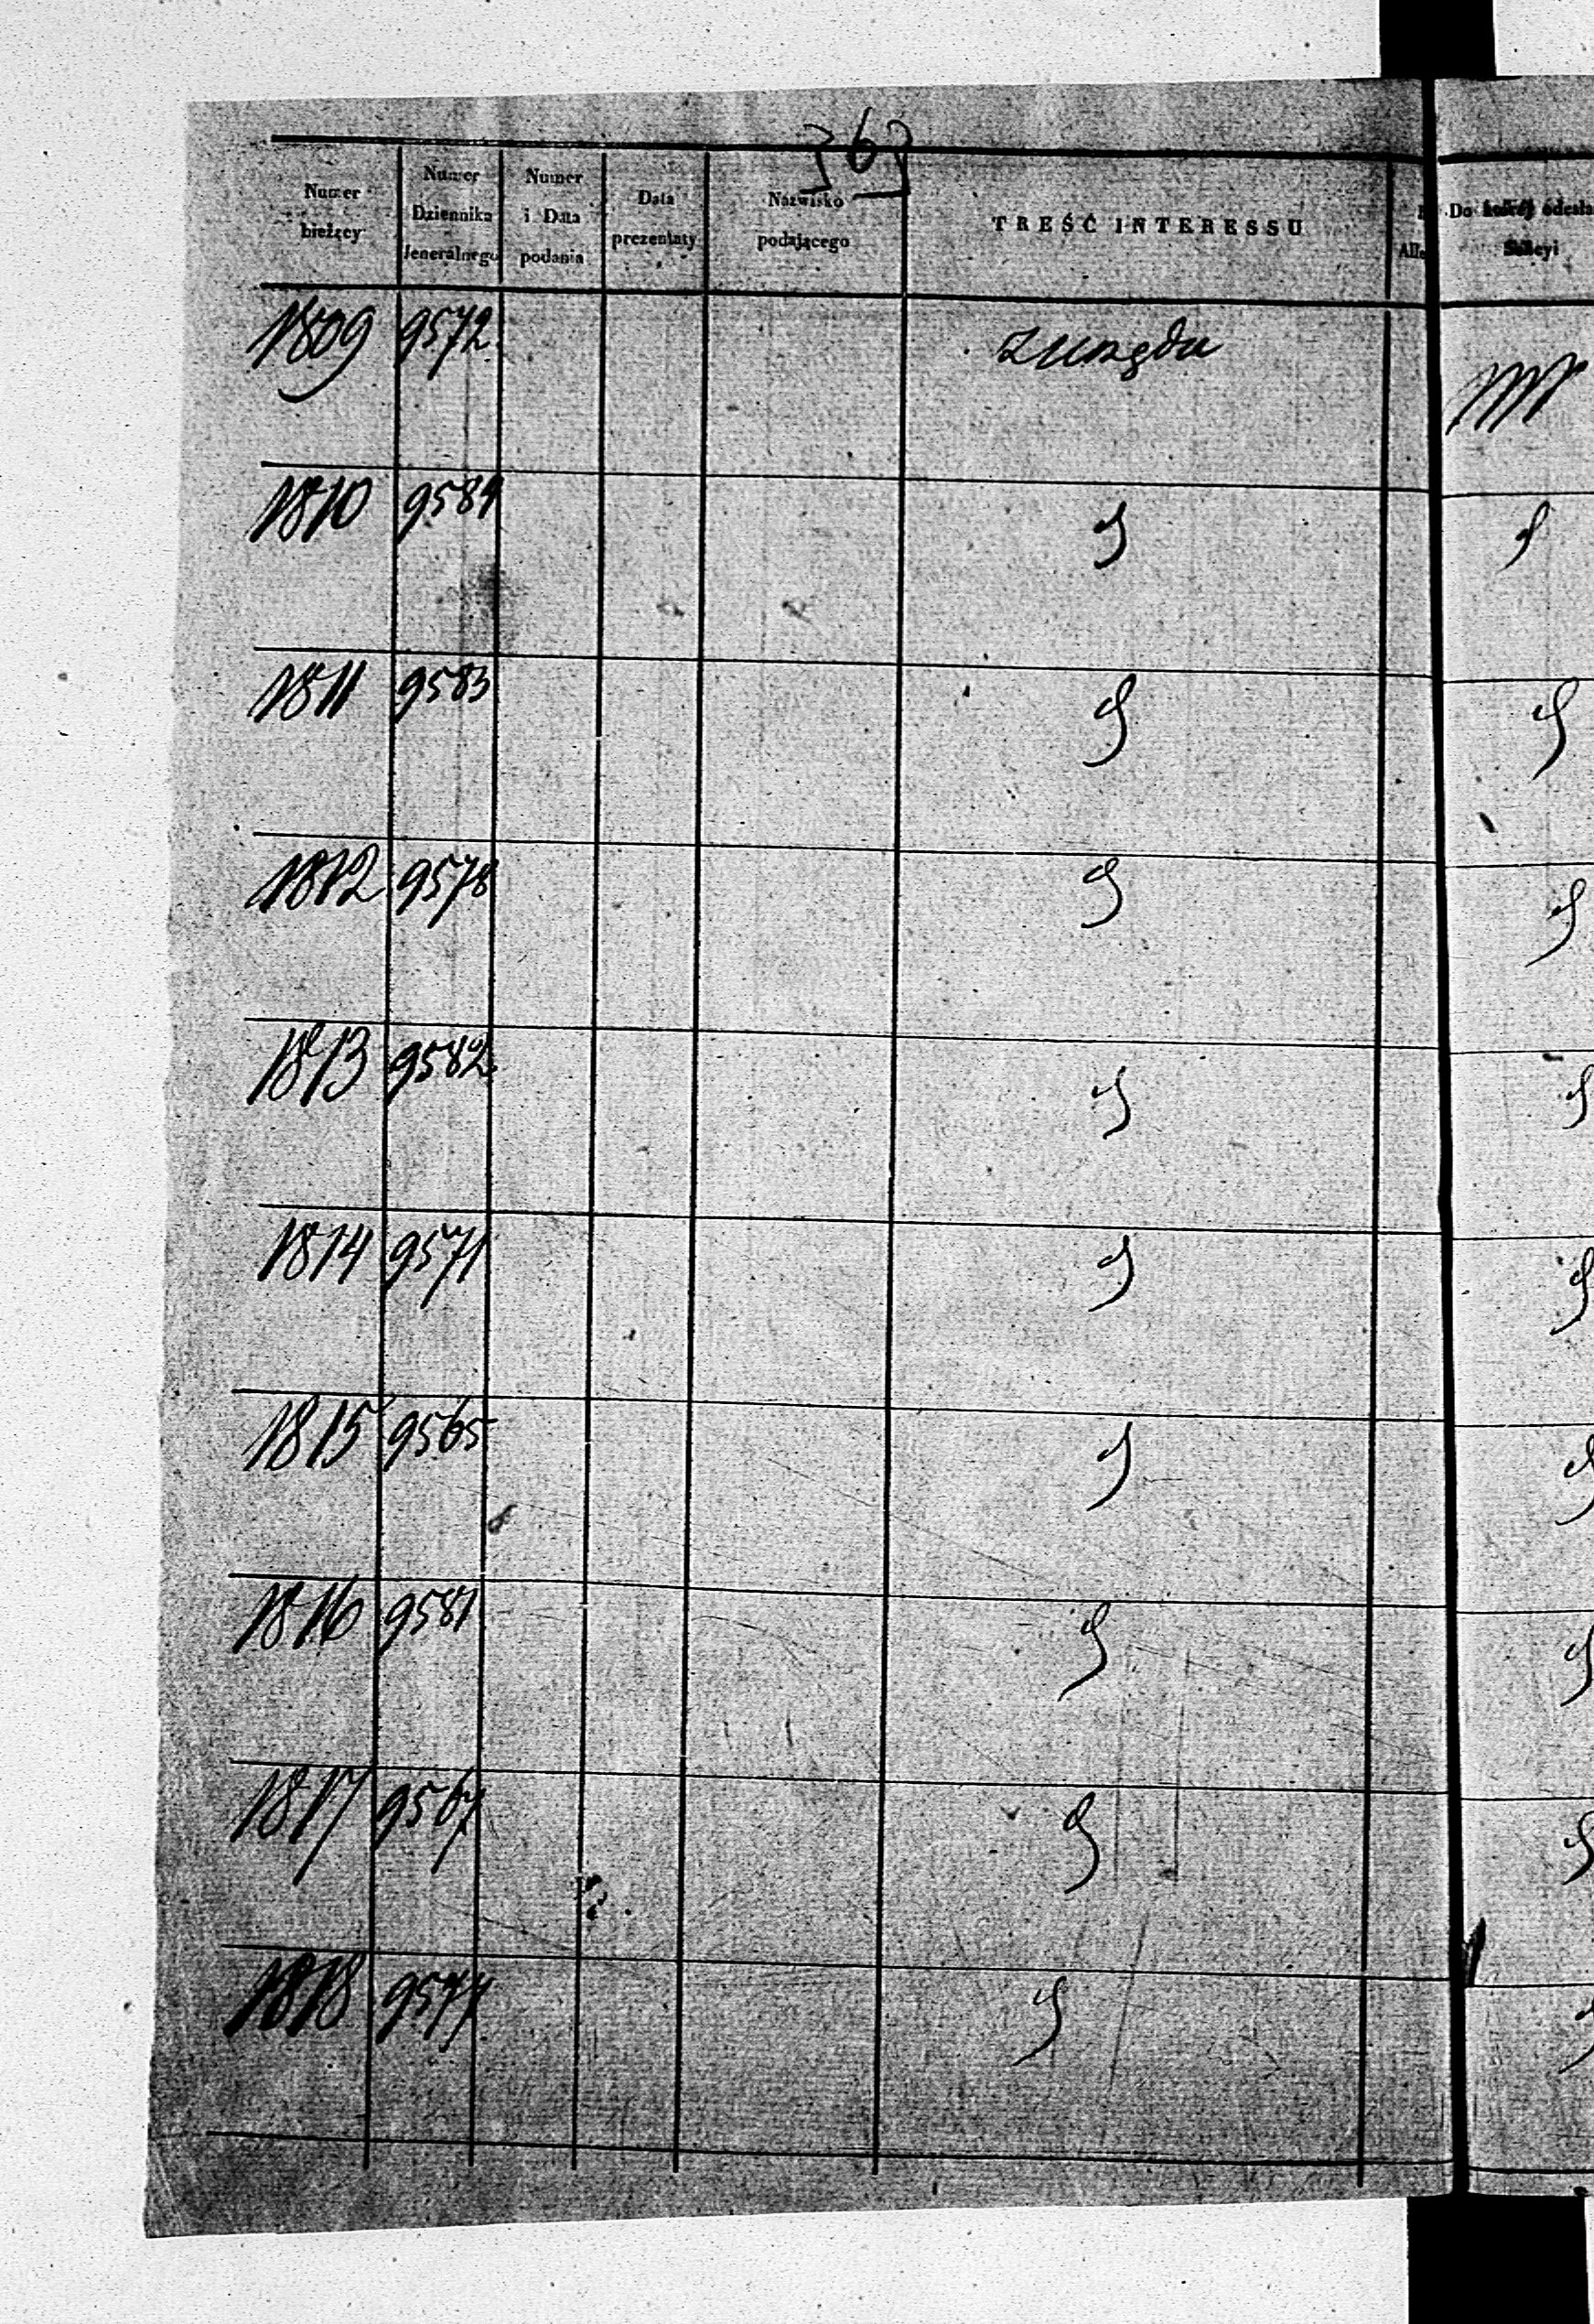 363
Numer bieżący
Numer Dziennika Jeneralnego
Numer i Data podania
Data prezentaty
Nazwisko podającego
TREŚĆ INTERESSU
Alle
Do której odesła
Sekcyi
1809 9572 z urzędu
1810 9584
1811 9583
1812 9578
1813 9582
1814 9571
1815 9565
1816 9581
1817 9567
1818 9577